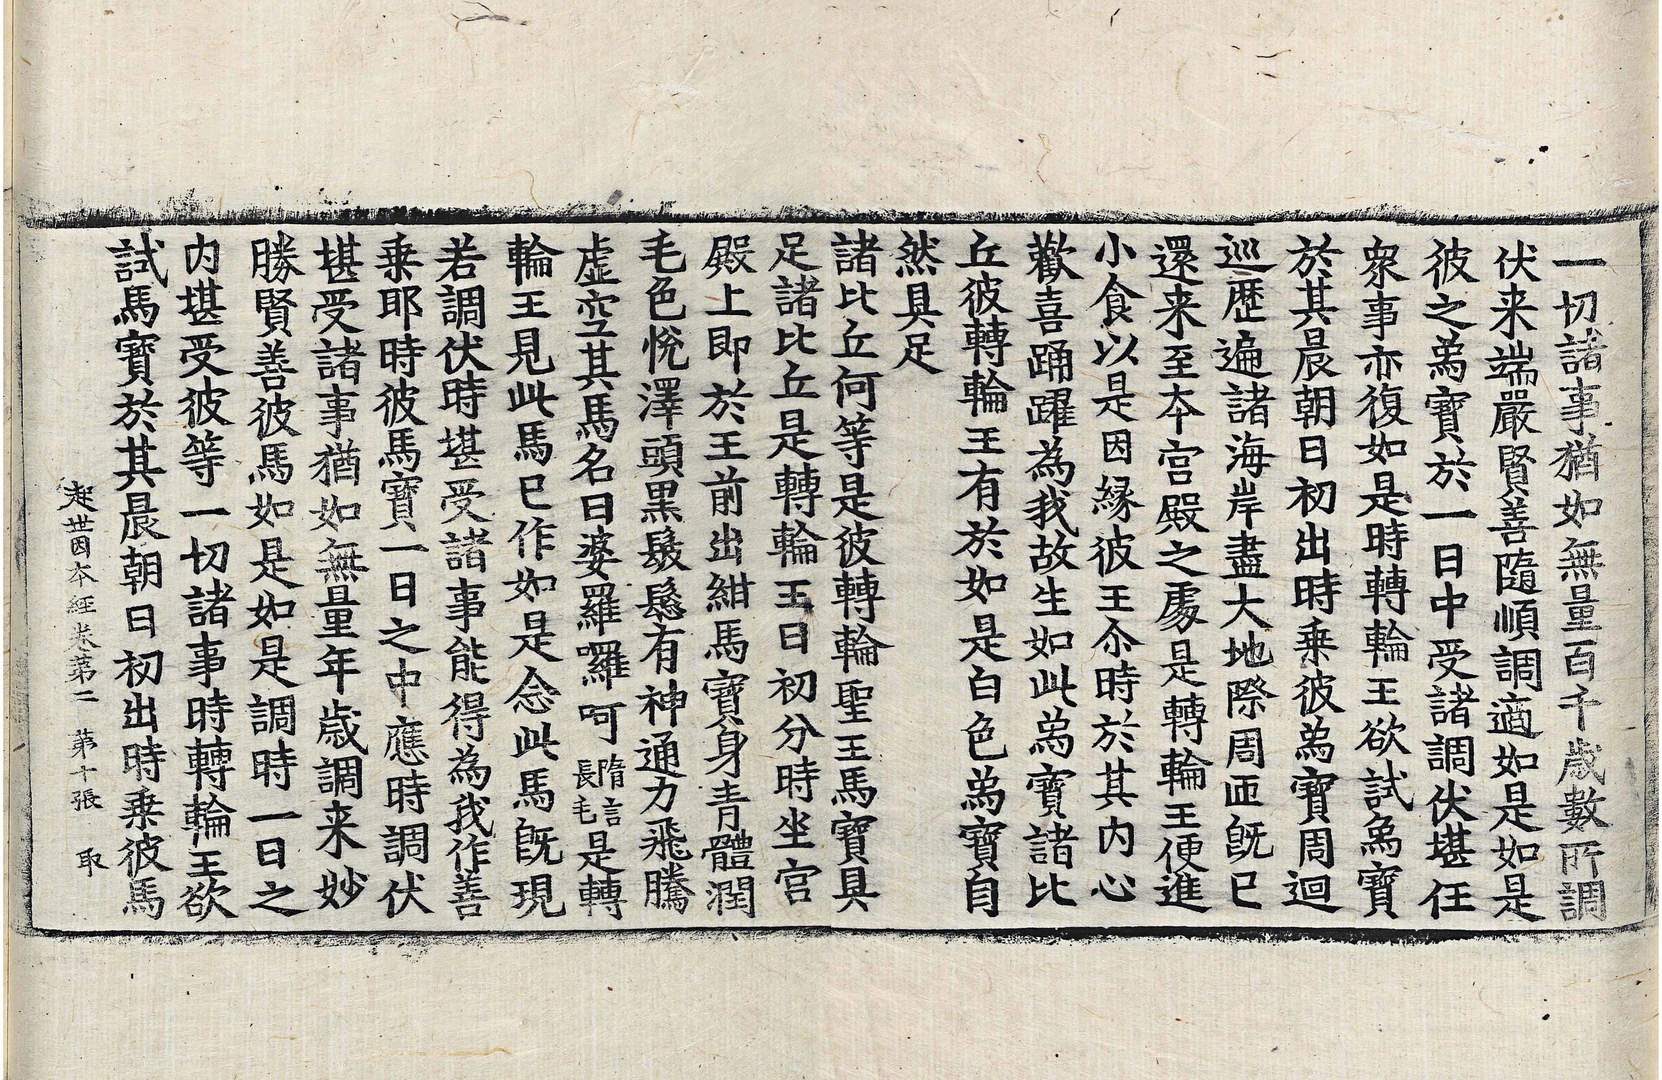 一切諸事猶如無量百千歲數所調
伏来端嚴賢善隨順調適如是如是
彼之為寶於一日中受諸調伏堪任
衆事亦復如是時轉輪王欲試為寶
於其晨朝日初出時乗彼為寶周迴
巡歷遍諸海岸盡大地際周匝旣已
還来至本宮殿之處是轉輪王便進
小食以是因緣彼王尒時於其内心
歡喜踊躍為我故生如此為寶諸比
丘彼轉輪王有於如是白色為寶自
然具足
諸比丘何等是彼轉輪聖王馬寶具
足諸比丘是轉輪王日初分時坐宮
殿上即於王前出紺馬寶身青體潤
毛色悅澤頭黒髮鬆有神通力飛騰
虛空其馬名曰婆羅囉呵隋言長毛是轉
輪王見此馬已作如是念此馬旣現
若調伏時堪受諸事能得為我作善
乗耶時彼馬寶一日之中應時調伏
堪受諸事猶如無量年歲調来妙
勝賢善彼馬如是如是調時一日之
内堪受彼等一切諸事時轉輪王欲
試馬寶於其晨朝日初出時乗彼馬
起世因本經卷第二　第十張　取